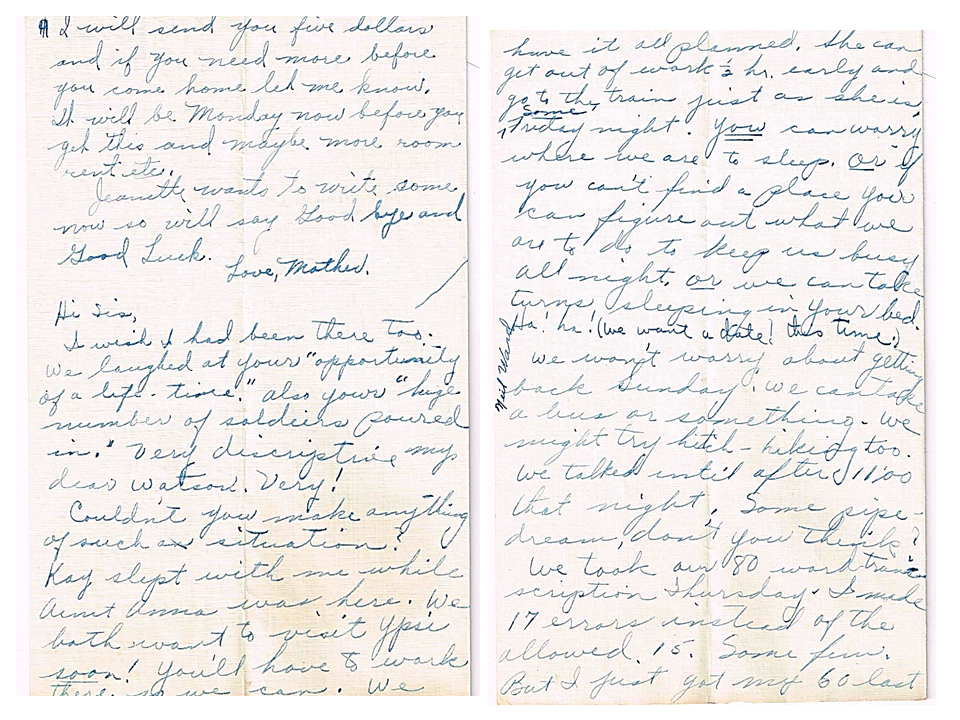 ¶ I will send you five dollars
and if you need more before
you come home let me know.
It will be Monday now before you
get this and maybe more room
rent etc.
Jeanette wants to write some
now so will say Good bye and
Good Luck.
Love, Mother.
Hi Sis,
I wish I had been there too.
We laughed at your "opportunity
of a life-time." also your "huge
number of soldiers poured
in." Very discriptive my
dear Watson. Very!
Couldn't you make anything
of such a situation?
Kay slept with me while
Aunt Anna was here. We
both want to visit Ypsi
soon! You'll have to work
there so we can. We
have it all planned. She can
get out of work ½ hr. early and
go to the train just as she is
some
Friday night. You can worry
where we are to sleep. Or if
you can't find a place your
can figure out what we
are to do to keep us busy
all night, or we can take
turns sleeping in your bed.
Ha! ha! (We want a date! this time!)
Neil Ward
We won't worry about getting
back Sunday! We can take
a bus or something. We
might try hitch-hiking too.
We talked until after 11:00
that night. Some pipe-
dream, don't you think?
We took our 80 word tran-
scription Thursday. I made
17 errors instead of the
allowed 15. Some fun.
But I just got my 60 last